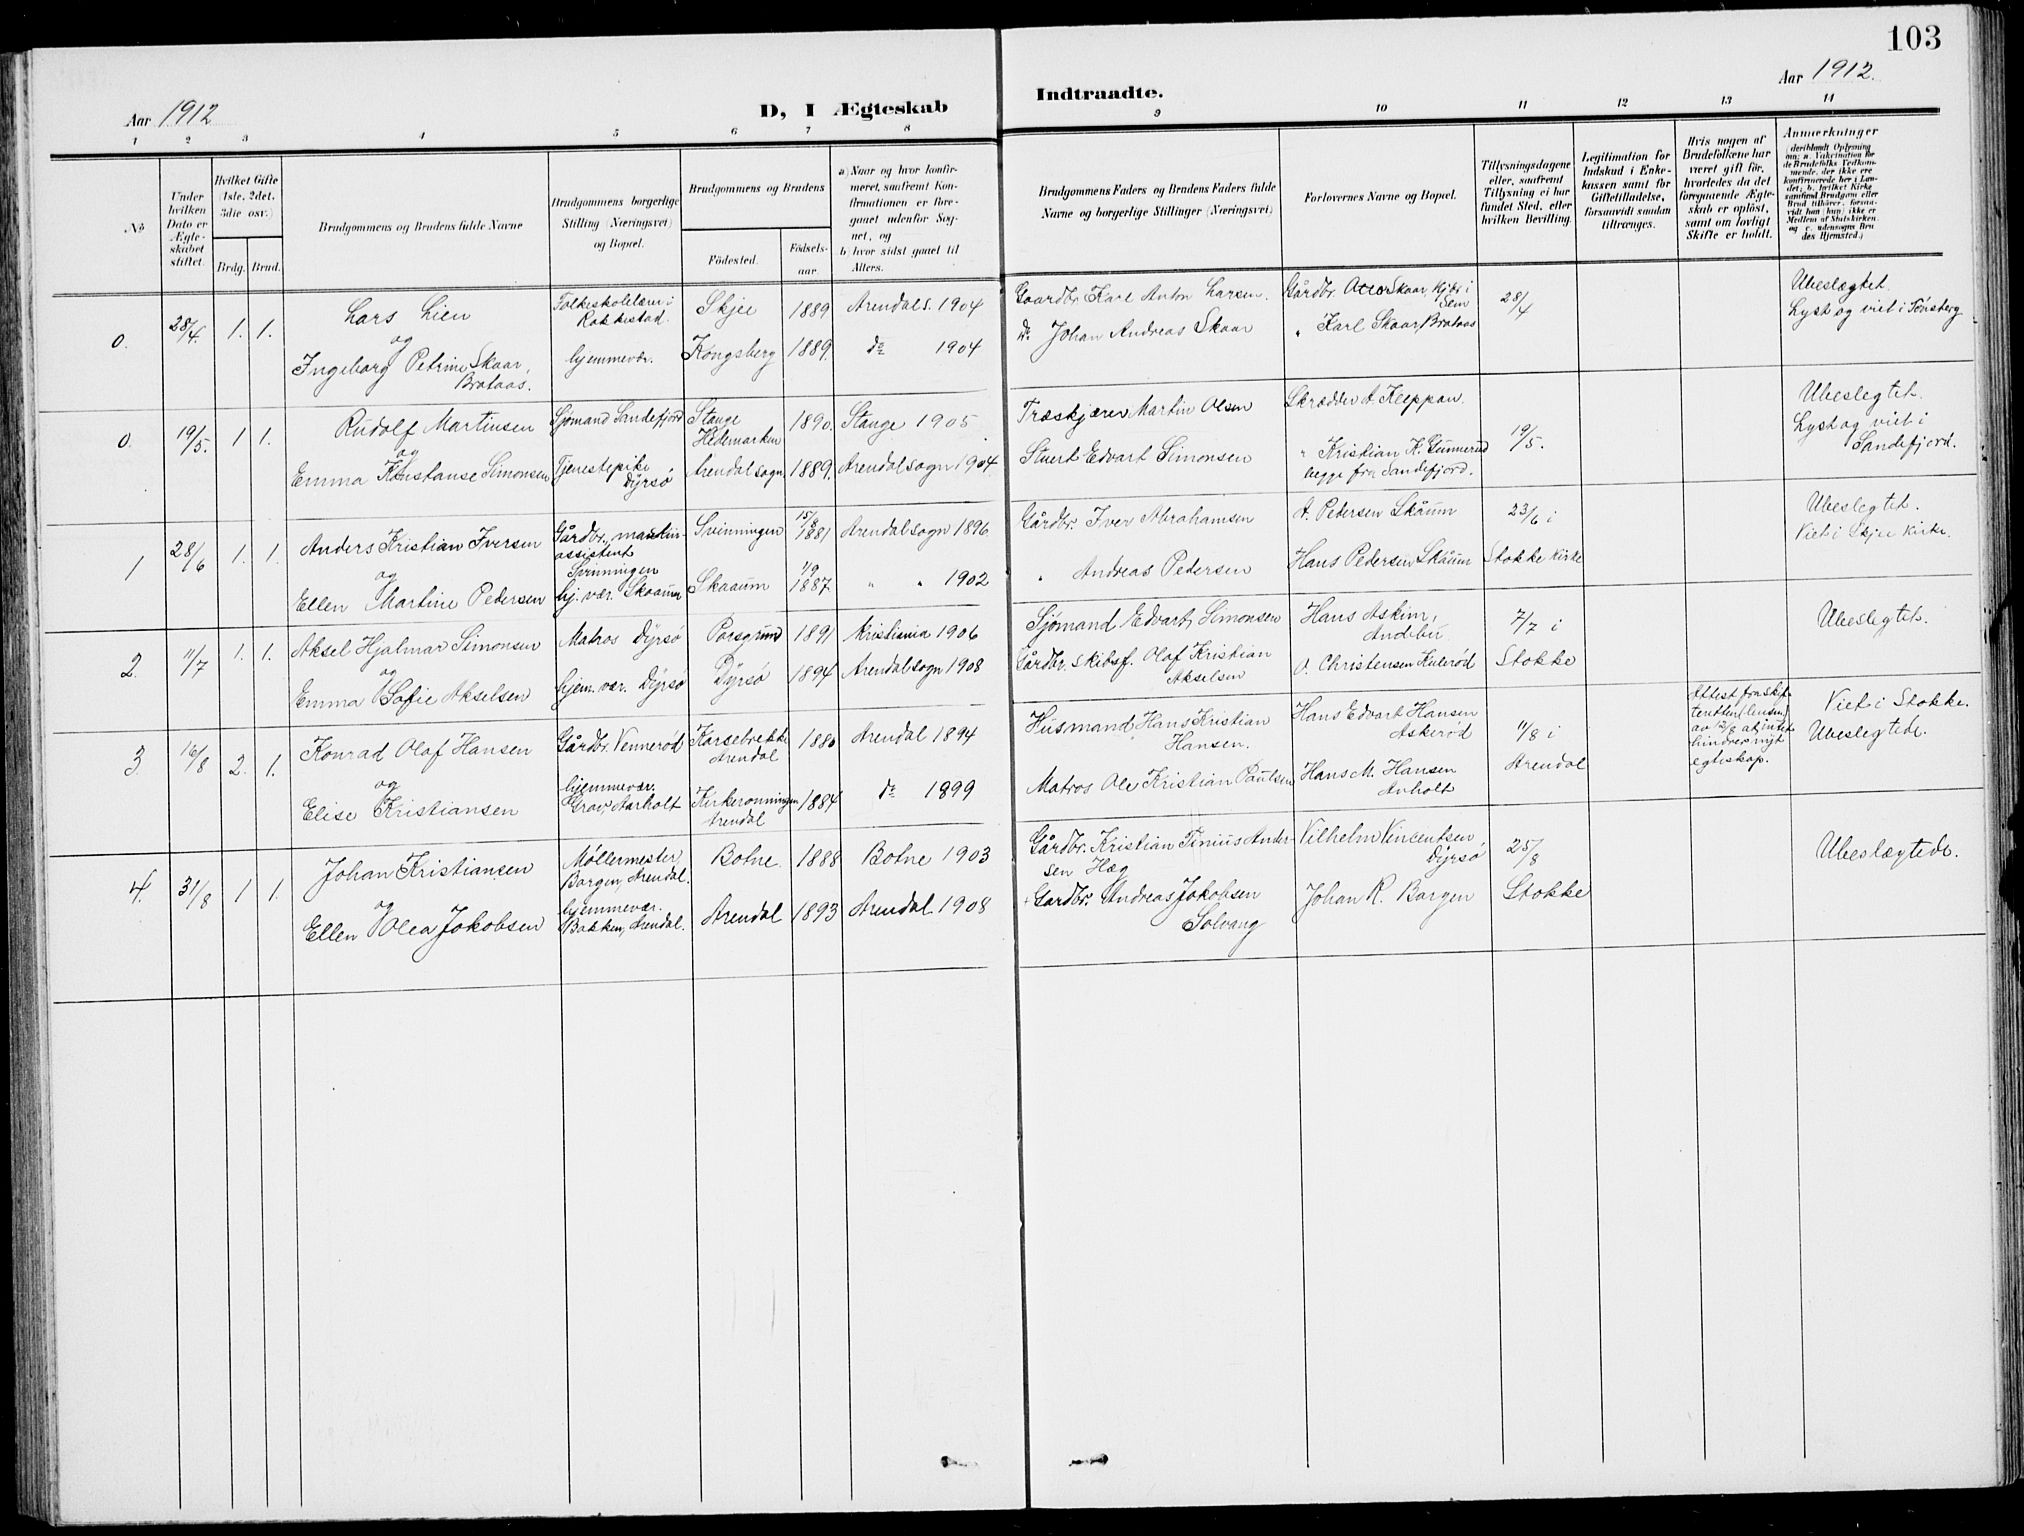 103
Aar 1912
D, I Ægteskab
Indtraadte.
Aar 1912.
1 2 3 4 5 6 7 8 9 10 11 12 13 14
No
Under hvilken Dato er Ægteskabet stiftet.
Hvilket Gifte (1ste, 2det, 3die osv.)
Brdg. Brud.
Brudgommens og Brudens fulde Navne
Brudgommens borgerlige Stilling (Næringsvei) og Bopæl.
Brudgommens og Brudens
Fødested.
Fødselsaar.
a) Naar og hvor konfirmeret, saafremt Konfirmationen er foregaaet udenfor Sognet, og
b) hvor sidst gaaet til Alters.
Brudgommens Faders og Brudens Faders fulde Navne og borgerlige Stillinger (Næringsvei)
Forlovernes Navne og Bopæl.
Tillysningsdagene eller, saafremt Tillysning ei har fundet Sted, eller hvilken Bevilling.
Legitimation for Indskud i Enkekassen samt for Giftetilladelse, forsaavidt saadan tiltrænges.
Hvis nogen af Brudefolkene har været gift før, hvorledes da det foregaaende Ægteskab er opløst, samt om lovligt Skifte er holdt.
Anmerkninger (deriblandt Oplysning om: a. Vakcination for de Brudefolks Vedkommende, der ikke ere konfirmerede her i Landet; b. hvilket Kirkesamfund Brudgom eller Brud tilhører, forsaavidt han (hun) ikke er Medlem af Statskirken og c. udensogns Brudes Hjemsted.)
0. 28/4. 1. 1. Lars Lien
og
Ingeborg Petrine Skaar,
Brataas.
Folkeskolelærer i
Rakkestad.
hjemmevær.
Skjee 1889 Arendals. 1904
Kongsberg 1889. do 1904
Gaardbr. Karl Anton Larsen.
do Johan Andreas Skaar
Gårdbr. Skaar, i
Sem
" Karl Skaar Brataas
28/4
Ubeslægtet.
Lyst og viet i Tønsberg
0. 19/5. 1 1. Rudolf Martinsen
og
Emma Konstanse Simonsen
Sjømand Sandefjord
Tjenestepike
Dyrsø
Stange
Hedemarken 1890. Stange 1905
Arendal sogn 1889. Arendal sogn 1904.
Træskjærer Martin Olsen
Stuert Edvart Simonsen
Skrædder A. Kleppan.
" Kristian K. Gunnerud
begge fra Sandefjord.
19/5.
Ubeslegtet.
Lyst og viet i
Sandefjord.
1 28/6 1. 1. Anders Kristian Iversen
og
Ellen Martine Pedersen
Gårdbr., maskinassistent
Svinningen
hj. vær. Skaaum
Svinningen 15/8 1881 Arendal sogn 1896.
Skaaum 1/9 1887 " " 1902
Gårdbr. Iver Abrahamsen
" Andreas Pedersen
A. Pedersen Skåum
Hans Pedersen Skåum
23/6 i
Stokke kirke
Ubeslegtet.
Viet i Skjee Kirke.
2. 11/7 1. 1. Aksel Hjalmar Simonsen
og
Emma Sofie Akselsen
Matros Dyrsø
hjem. vær. Dyrsø
Porsgrund 1891 Kristiania 1906
Dyrsø 1894 Arendal sogn 1908
Sjømand Edvart Simonsen
Gårdbr. skibsf. Olaf Kristian
Akselsen
Hans Askim,
Andebu
O. Christensen Hulerød
7/7 i
Stokke
Ubeslegtet.
3. 16/8 2. 1. Konrad Olaf Hansen
og
Elise Kristiansen
Gårdbr. Vennerød
hjemmevær.
Grav, Aarholt
Karsebrekke
Arendal 1880 Arendal 1894
Kirkerønningen
Arendal 1884 do 1899
Husmand Hans Kristian
Hansen.
Matros Ole Kristian Paulsen
Hans Edvart Hansen
Askerød
Hans M. Hansen
Arholt
11/8 i
Arendal
Attest fra skifteretten
av 12/8 at intet
hindrer nyt
egteskap.
Viet i Stokke.
Ubeslegtede.
4. 31/8 1 1. Johan Kristiansen
og
Ellen Olea Jakobsen
Møllermester
Borgen, Arendal.
hjemmevær.
Bakken, Arendal.
Botne 1888 Botne 1903
Arendal 1893 Arendal 1908
Gårdbr. Kristian Tinius Andersen Hæg
Gardbr. Andreas Jakobsen
Solvang
Vilhelm Vincentsen
Dyrsø
Johan R. Borgen
25/8
Stokke
Ubeslægtede.